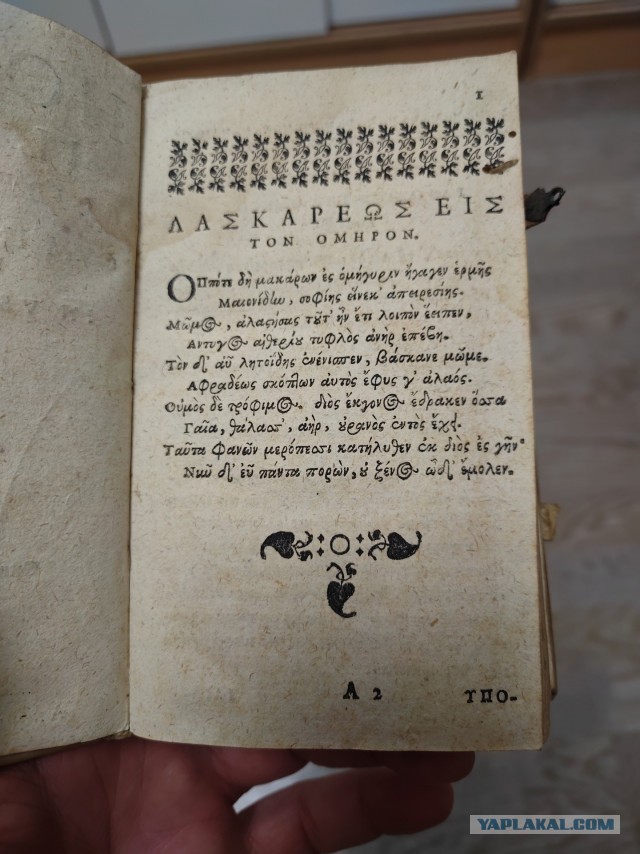 1
ΛΑΣΚΑΡΕΩΣ ΕΙΣ
ΤΟΝ ΟΜΗΡΟΝ.
ΟΠπότε δὴ μακάρων ἐς ὁμήγυριν ἤγαγεν ἑρμῆς
Μαιονίδίω, σοφίης εἵνεκ' ἀπειρεσίης.
Μῶμος, ἀλαςήσας τȣ͂τ' ἦν ἔτι λοιπὸν ἔειπεν,
Αντυγος αἰθερίȣ τυφλὸς ἀνὴρ ἐπέβη.
Τὸν δ' αὖ λητοΐδης ἐνένιππεν, βάσκανε μῶμε.
Αφραδέως σκόπλων αὐτὸς ἔφυς γ' ἀλαός.
Οὑμὸς δὲ τρόφιμος. διὸς ἔκγονος ἔδρακεν ὅσσα
Γαῖα, θάλασσ', ἀὴρ, ȣ̓ρανὸς ἐντὸς ἔχει.
Ταῦτα φανῶν μερόπεσσι κατήλυθεν ἐκ διὸς ἐς γῆν·
Νιῦ δ' εὖ πάντα πορὼν, ȣ̓ ξένος ὧδ' ἔμολεν.
Α 2
ΥΠΟ-
YAPLAKAL.COM